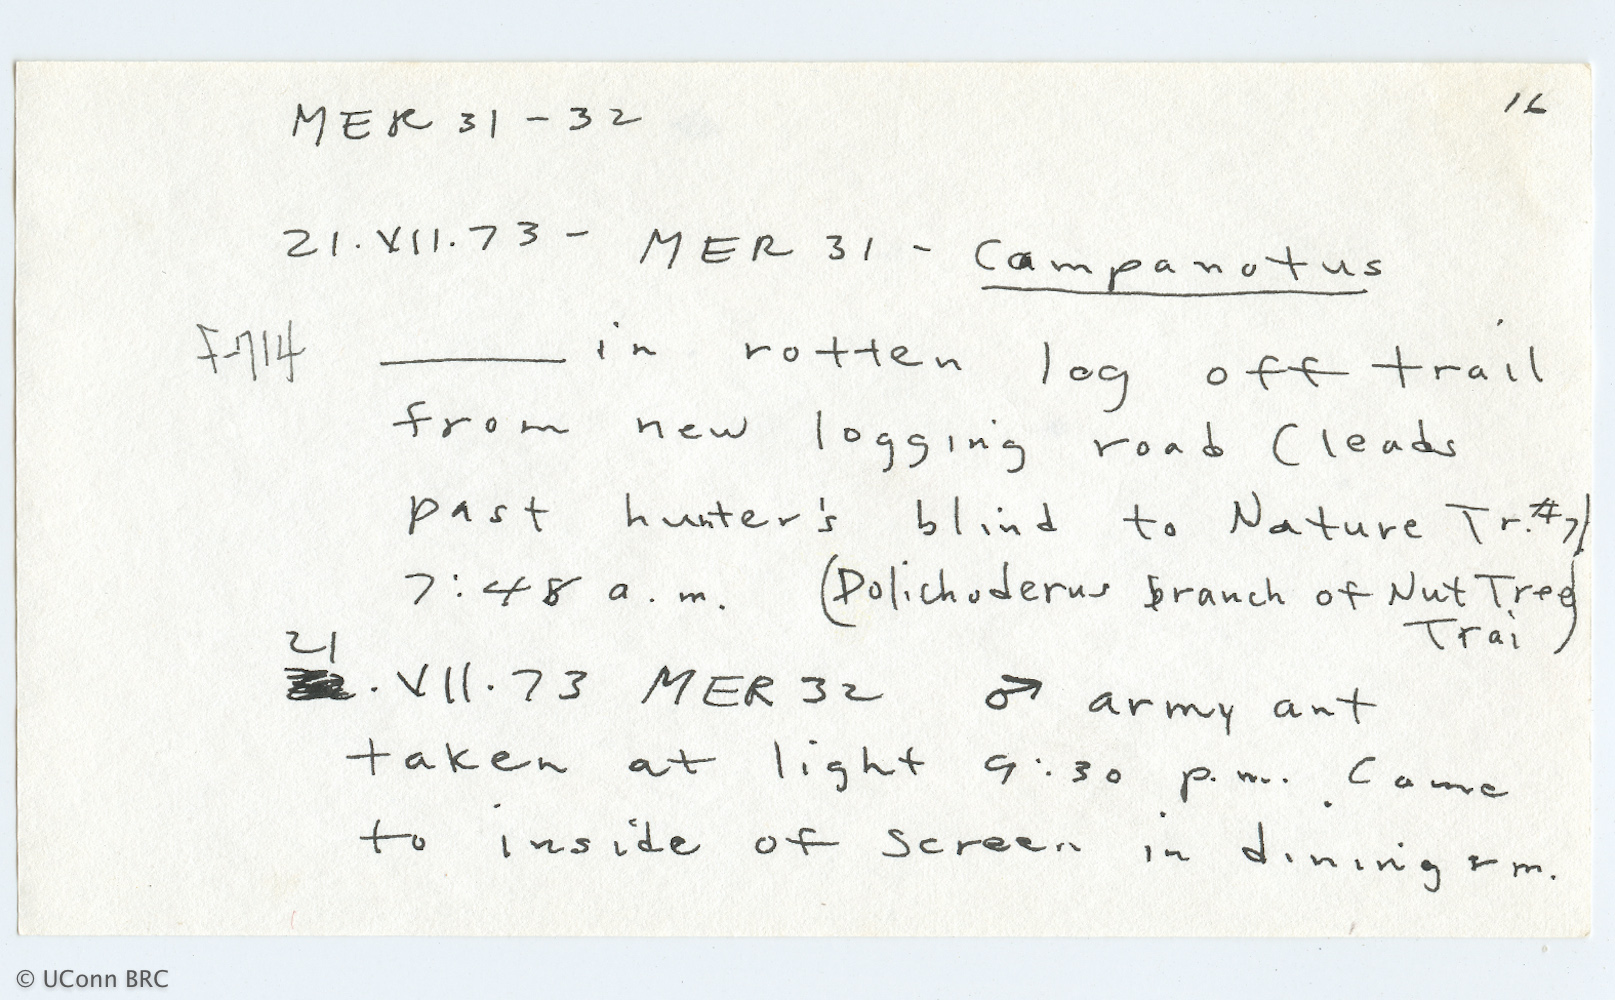 MER 31-32
16
21.VII.73 - MER 31 - Campanotus
F-714 ______ in rotten log off trail
from new logging road (leads
past hunter's blind to Nature Tr.#7)
7:48 a.m. (Dolichoderus branch of Nut Tree
Trai)
21
.VII.73 MER 32 ♂ army ant
taken at light 9:30 p.m.. Came
to inside of screen in dining rm.
© UConn BRC